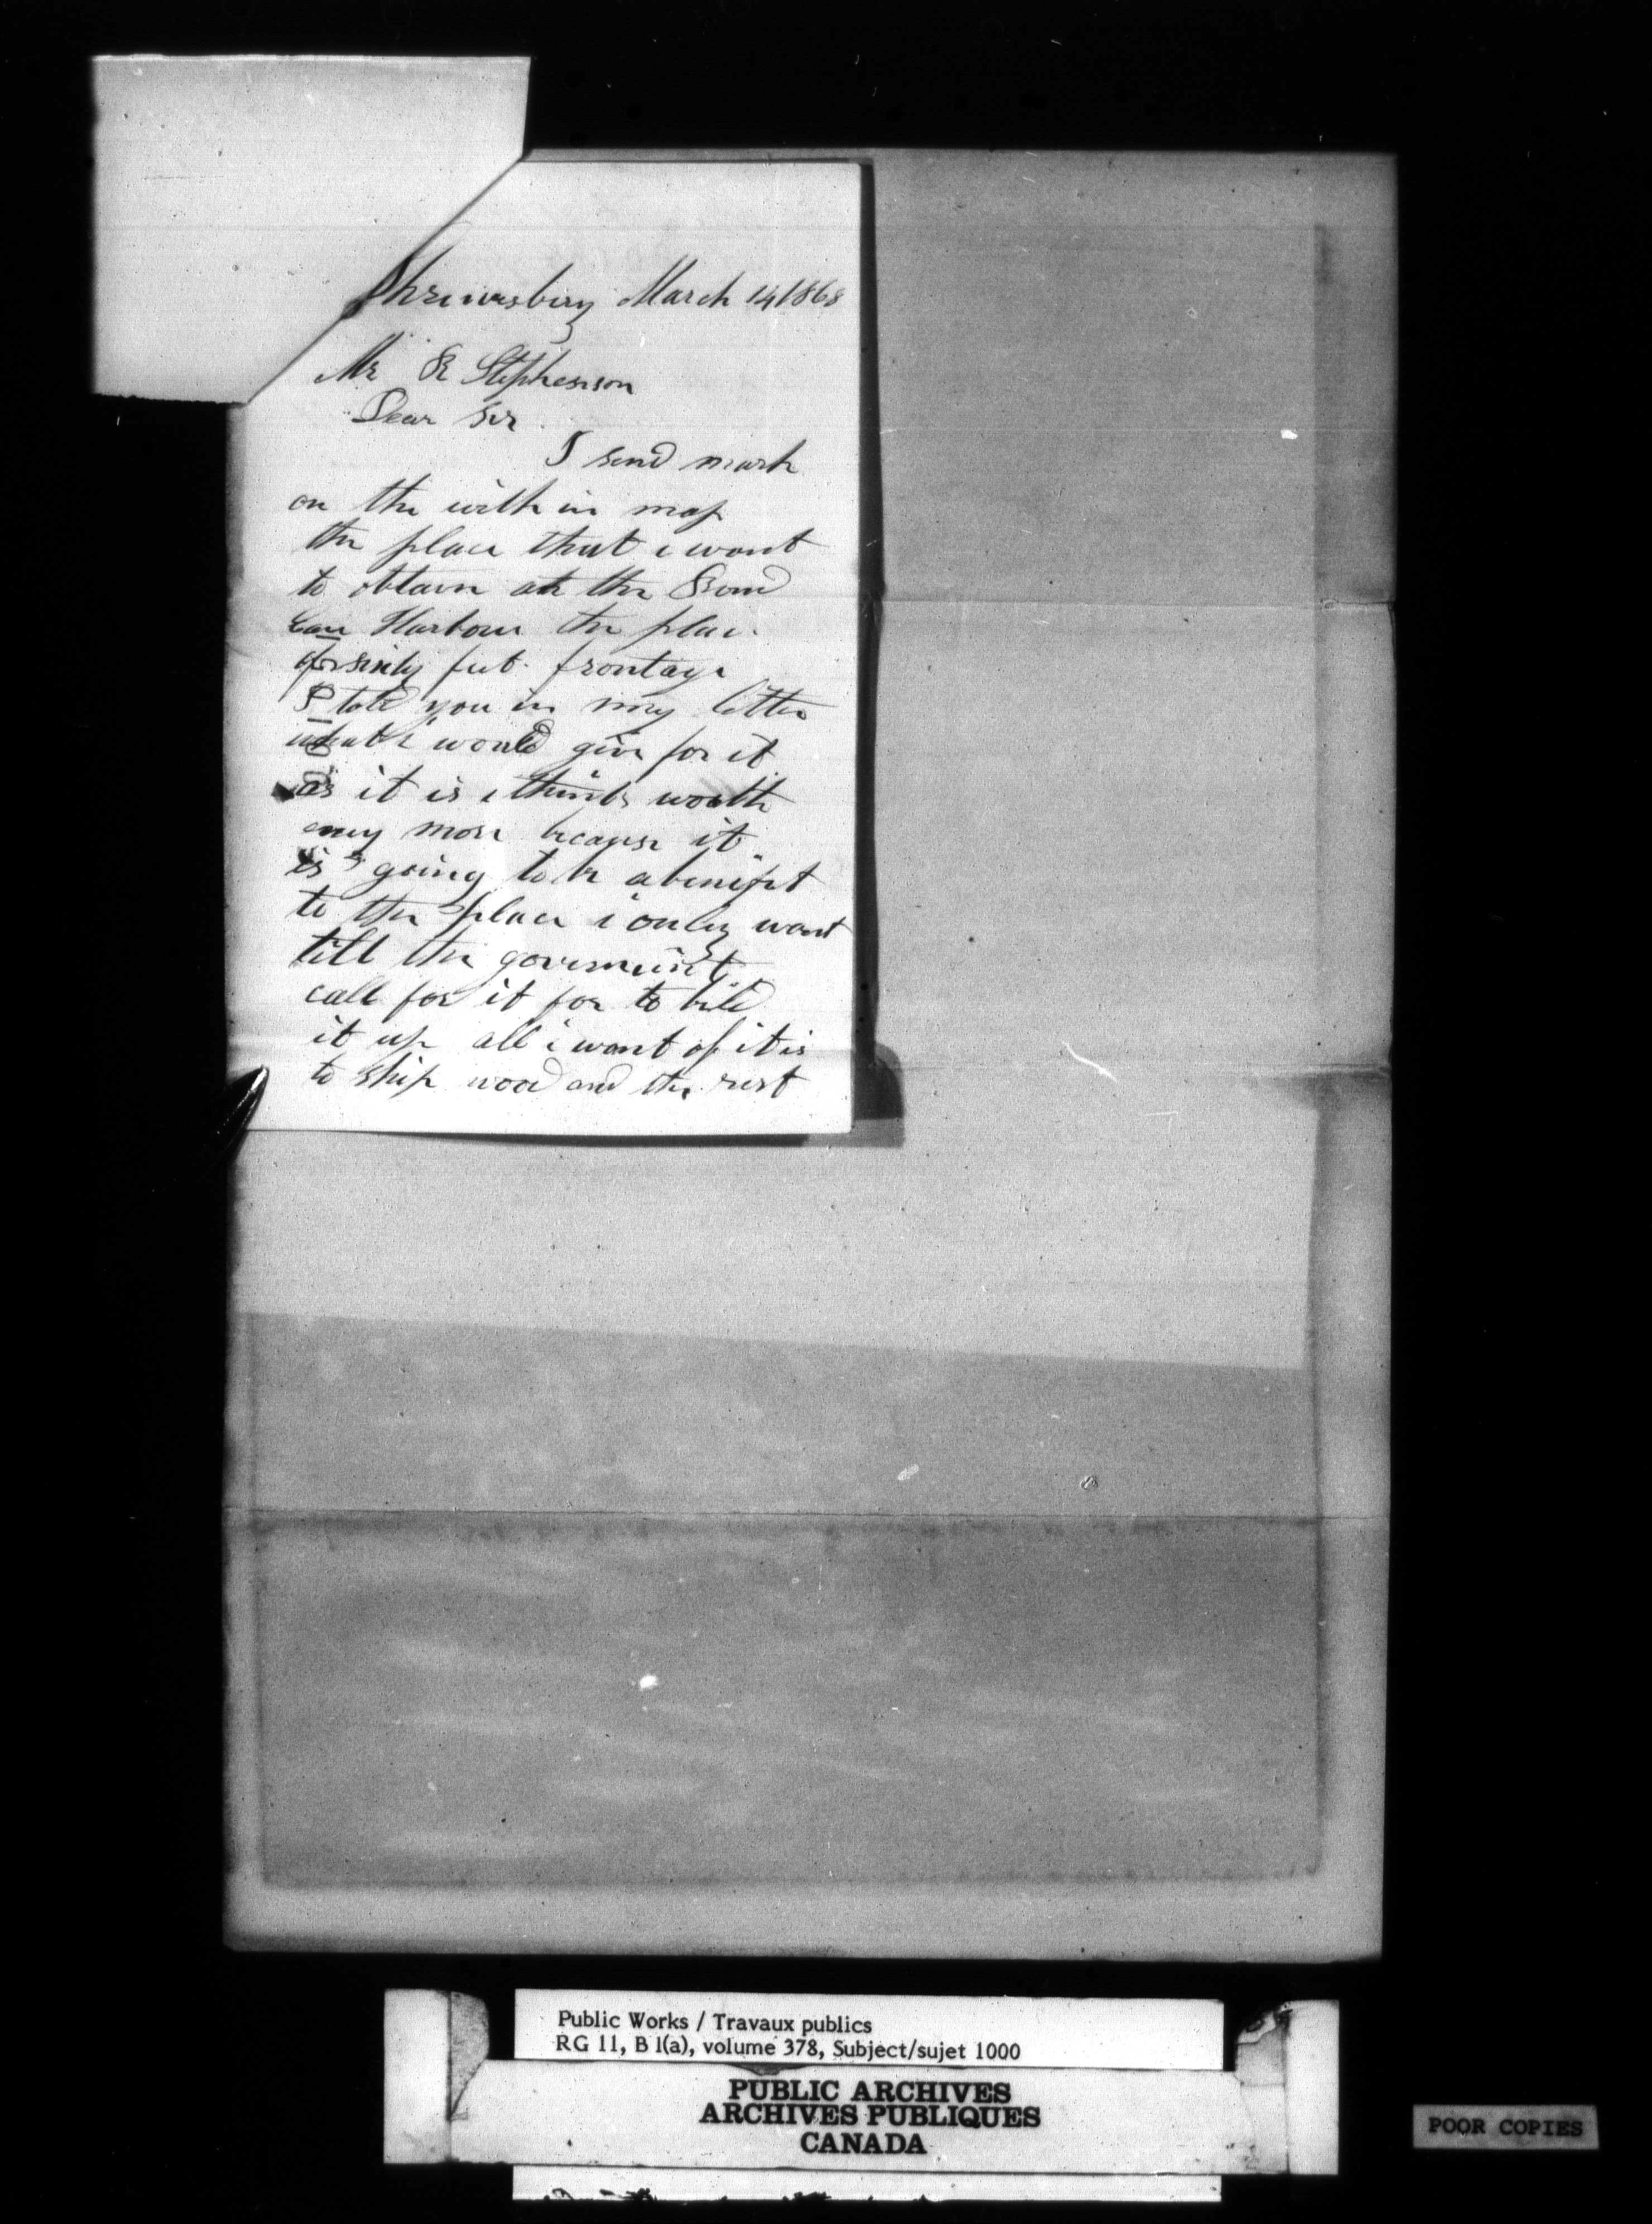 Shrewsbury March 14 1868
Mr R Stephenson
Dear Sir
I send mark
on the with in map
the place that i want
to obtain at the Rond
Eau Harbour the place
for sixty feet frontage
I told you in my letter
what i would give for it
as it is i think worth
more because it
is going to be a benifit
to the place i only want
till the goverment
call for it for to bild
it up all i want of it is
to ship wood and the rest
Public Works / Travaux publics
RG 11, B 1(a), volume 378, Subject/sujet 1000
PUBLIC ARCHIVES
ARCHIVES PUBLIQUES
CANADA
POOR COPIES